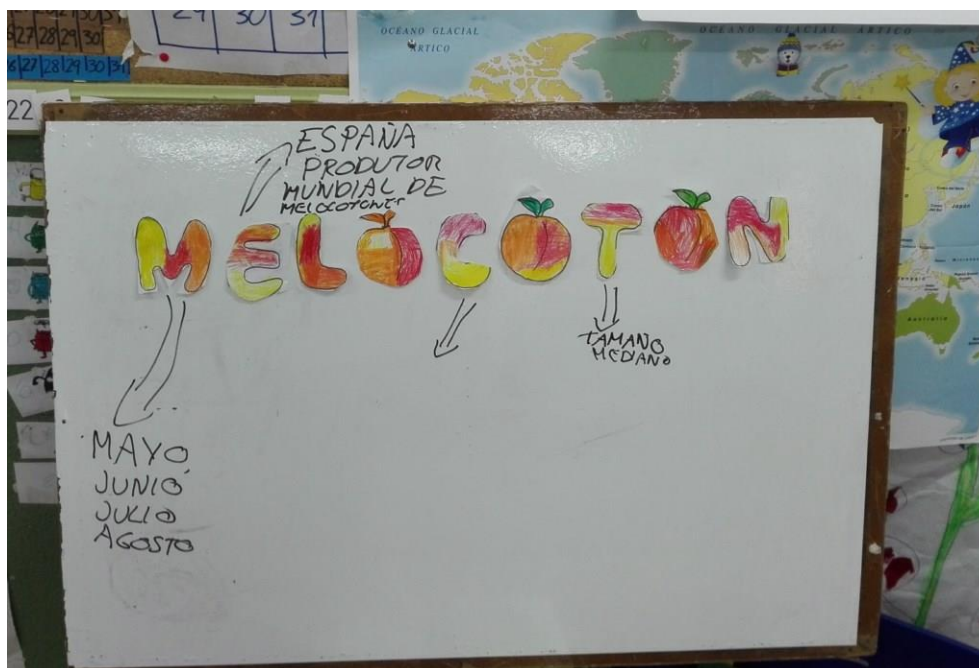 27 28 29 30
27 28 29 30 31
29 30 31
22
OCÉANO GLACIAL
ÁRTICO
OCÉANO GLACIAL ÁRTICO
ESPAÑA
PRODUTOR
MUNDIAL DE
MELOCOTONES
MELOCOTON
TAMAÑO
MEDIANO
MAYO
JUNIO
JULIO
AGOSTO
Australia